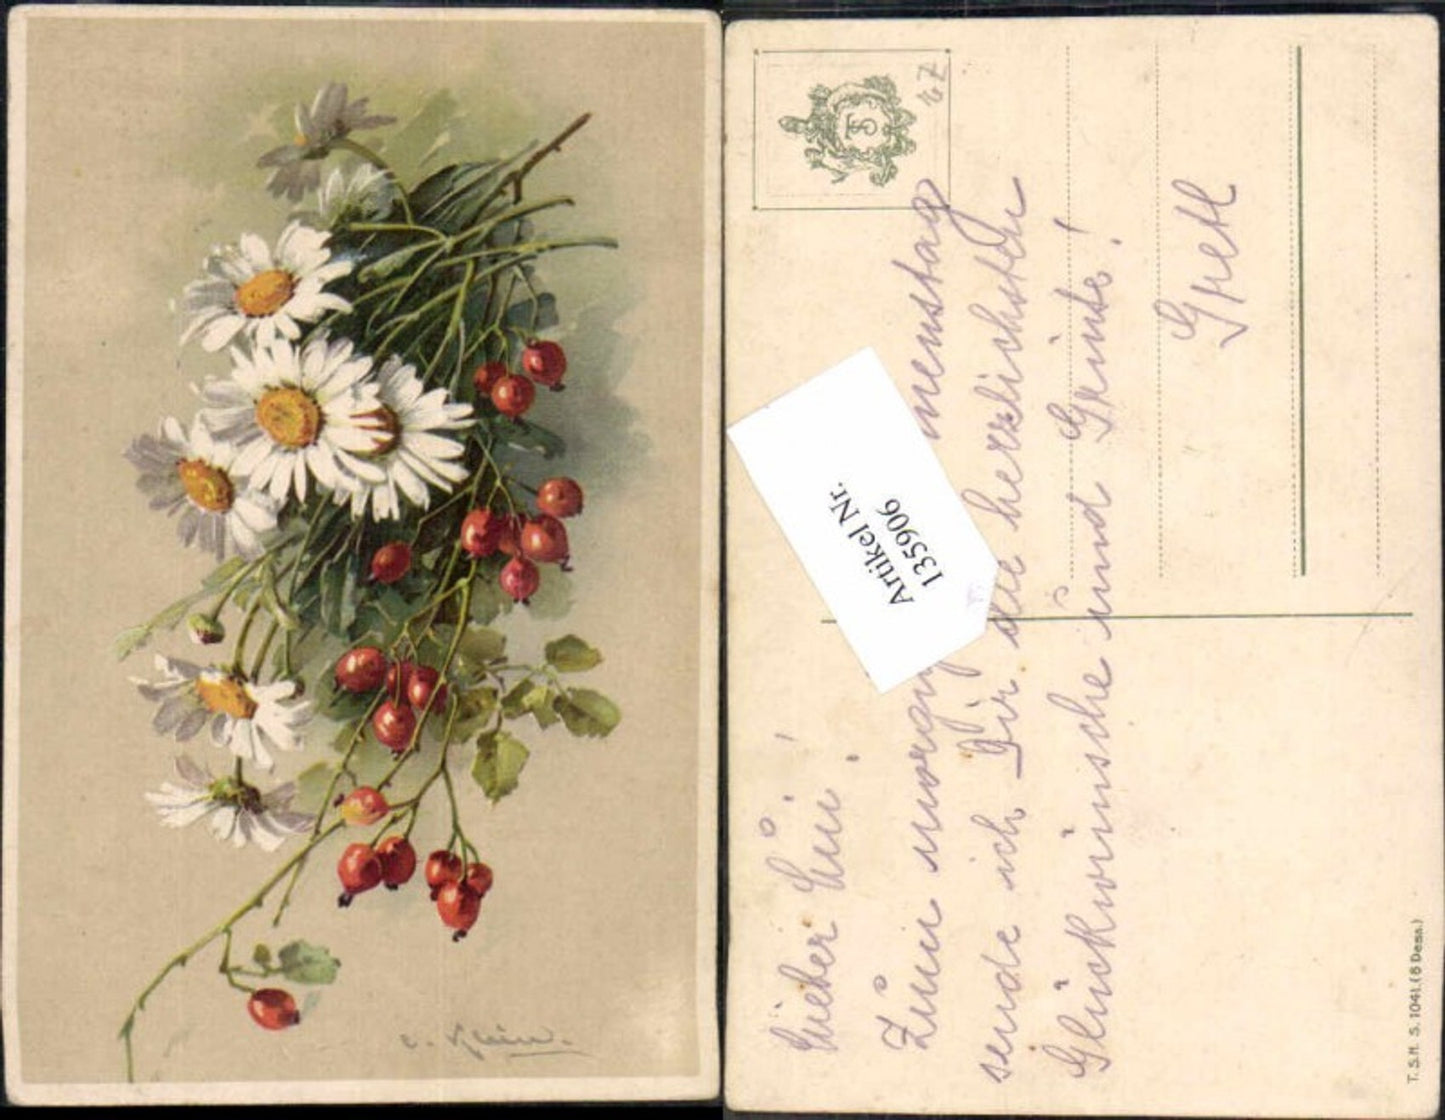 C. Klein.
TS
Lieber Luii!
Zum morgigen menstag
sende ich Dir die herzlichsten
Glückwünsche und Grüße!
Gretl
Artikel Nr.
135906
T. S. N. S. 1041. (8 Dess.)